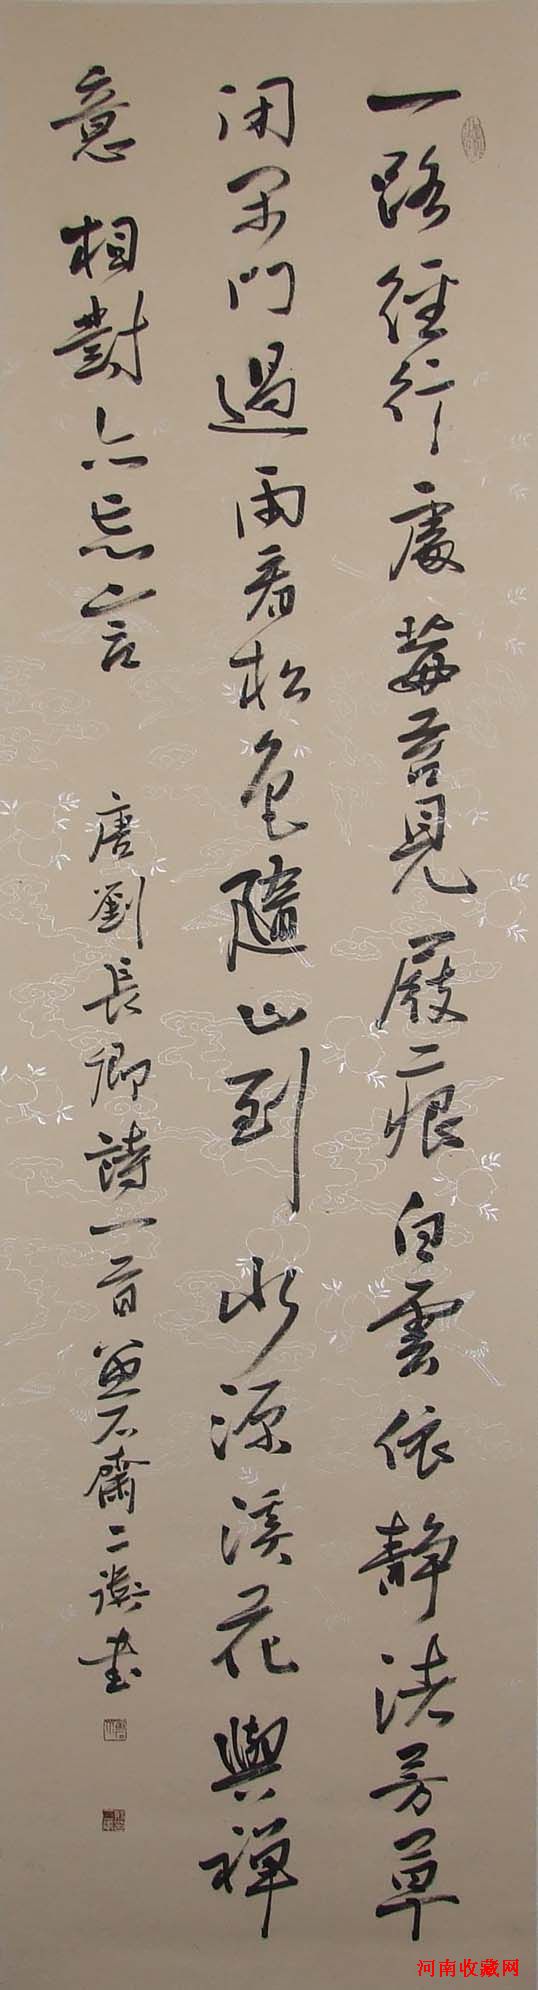 一路經行處莓苔見屐痕白雲依靜渚芳草
闭闲門過雨看松色隨山到水源溪花與禪
意相對亦忘言
唐劉長卿詩一首石齋書
河南收藏网